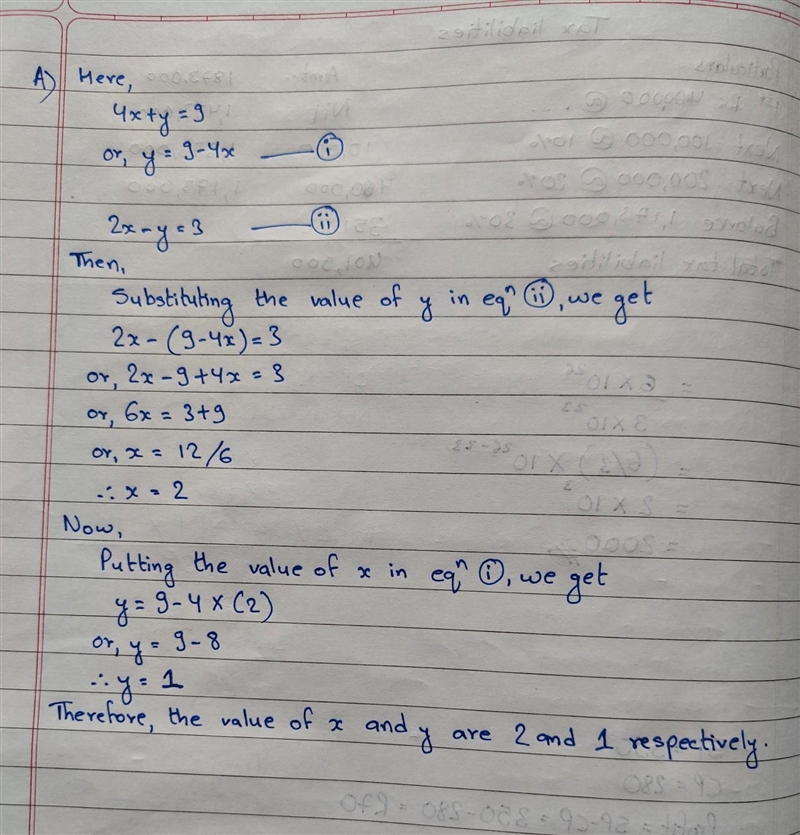 A) Here,
4x+y=9
or, y = 9-4x —— (i)
2x-y=3 —— (ii)
Then,
Substituting the value of y in eqⁿ (ii), we get
2x-(9-4x)=3
or, 2x-9+4x=3
or, 6x=3+9
or, x = 12/6
∴ x = 2
Now,
Putting the value of x in eqⁿ (i), we get
y=9-4×(2)
or, y = 9-8
∴ y = 1
Therefore, the value of x and y are 2 and 1 respectively.